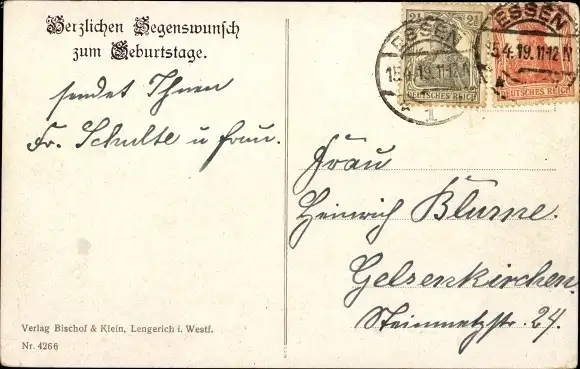 Herzlichen Segenswunsch
zum Geburtstage.
sendet Ihnen
Fr. Schulte u Frau.
2½ 2½
DEUTSCHES REICH
ESSEN
15.4.19.11-12V
1
DEUTSCHES REICH
ESSEN
15.4.19.11-12
Frau
Heinrich Blume.
Gelsenkirchen.
Steinmetzstr. 24.
Verlag Bischof & Klein, Lengerich i. Westf.
Nr. 4266